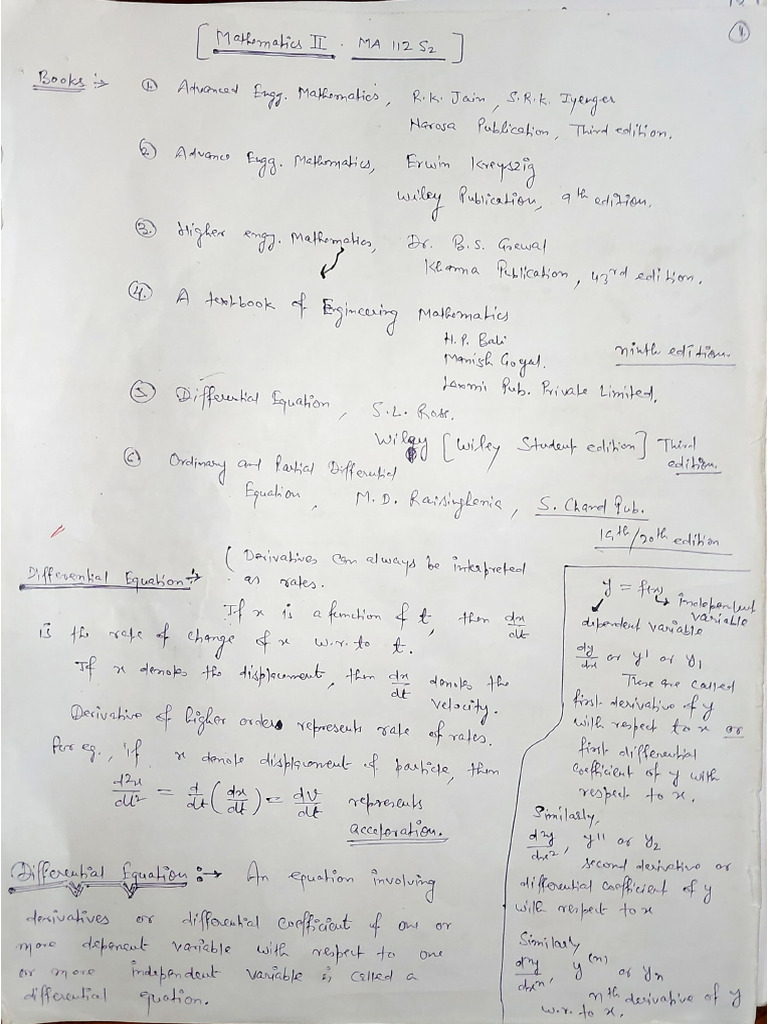 ①
[ Mathematics II . MA 112 S2 ]
Books :→ ① Advanced Engg. Mathematics, R.K. Jain, S.R.K. Iyenger
Narosa Publication, Third edition.
② Advance Engg. Mathematics, Erwin Kreyszig
Wiley Publication, 9th edition.
③ Higher engg. Mathematics, Dr. B.S. Grewal
Khanna Publication, 43rd edition.
④ A textbook of Engineering Mathematics
H.P. Bali
Manish Goyal. ninth edition.
Laxmi Pub. Private Limited.
⑤ Differential Equation, S.L. Ross.
Wiley [Wiley Student edition] Third edition.
⑥ Ordinary and Partial Differential
Equation, M.D. Raisinghania, S. Chand Pub.
19th/20th edition
Differential Equation :→ (Derivatives can always be interpreted
as rates.
If x is a function of t, then dx/dt
is the rate of change of x w.r. to t.
If x denotes the displacement, then dx/dt denotes the
velocity.
Derivative of higher orders represents rate of rates.
For eg., if x denote displacement of particle, then
d²x/dt² = d/dt (dx/dt) = dv/dt represents
acceleration.
Differential Equation :→ An equation involving
derivatives or differential coefficient of one or
more dependent variable with respect to one
or more independent variable is called a
differential quation.
y = f(x) → independent
variable
dependent variable
dy/dx or y' or y1
These are called
first derivative of y
with respect to x or
first differential
coefficient of y with
respect to x.
Similarly,
d²y/dx², y'' or y2
second derivative or
differential coefficient of y
with respect to x
Similarly
dⁿy/dxⁿ, y⁽ⁿ⁾ or yn
nth derivative of y
w.r. to x.